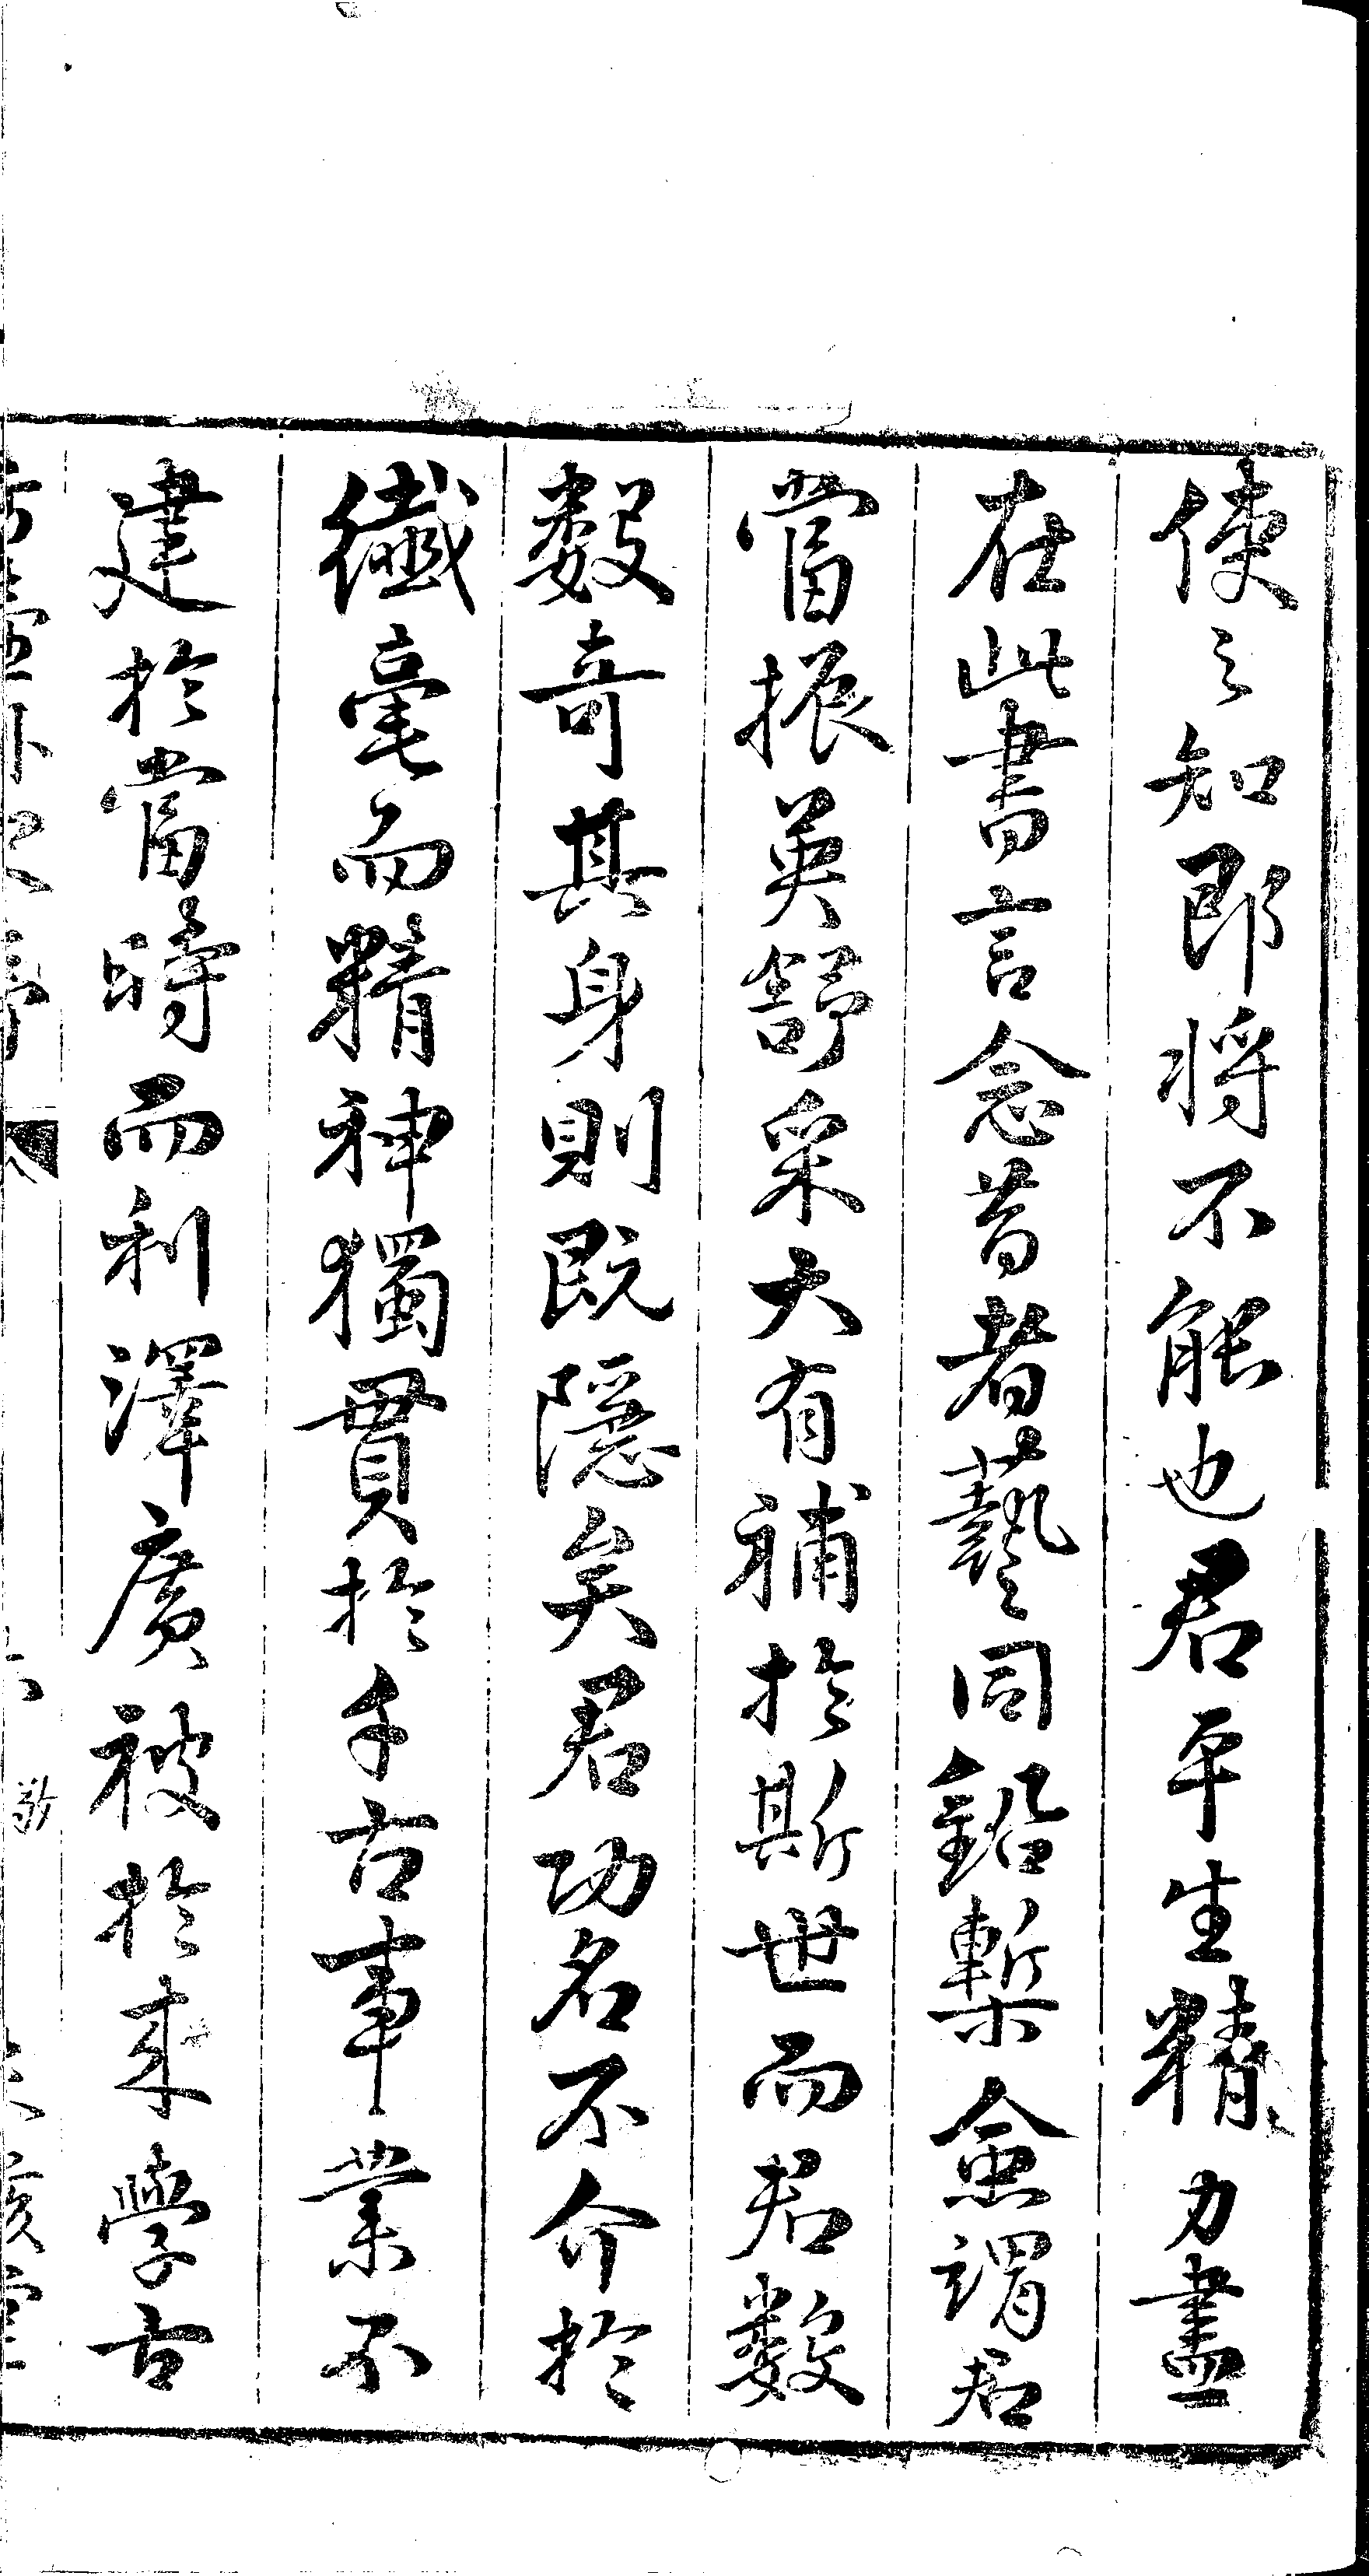 使之知即將不能也君平生精力盡
在此書言念昔者藝同鉛槧僉謂君
當振英舒采大有補於斯世而君數
數奇其身則既隱矣君功名不介於
纖毫而精神獨貫於千古事業不
建於當時而利澤廣被於來學古